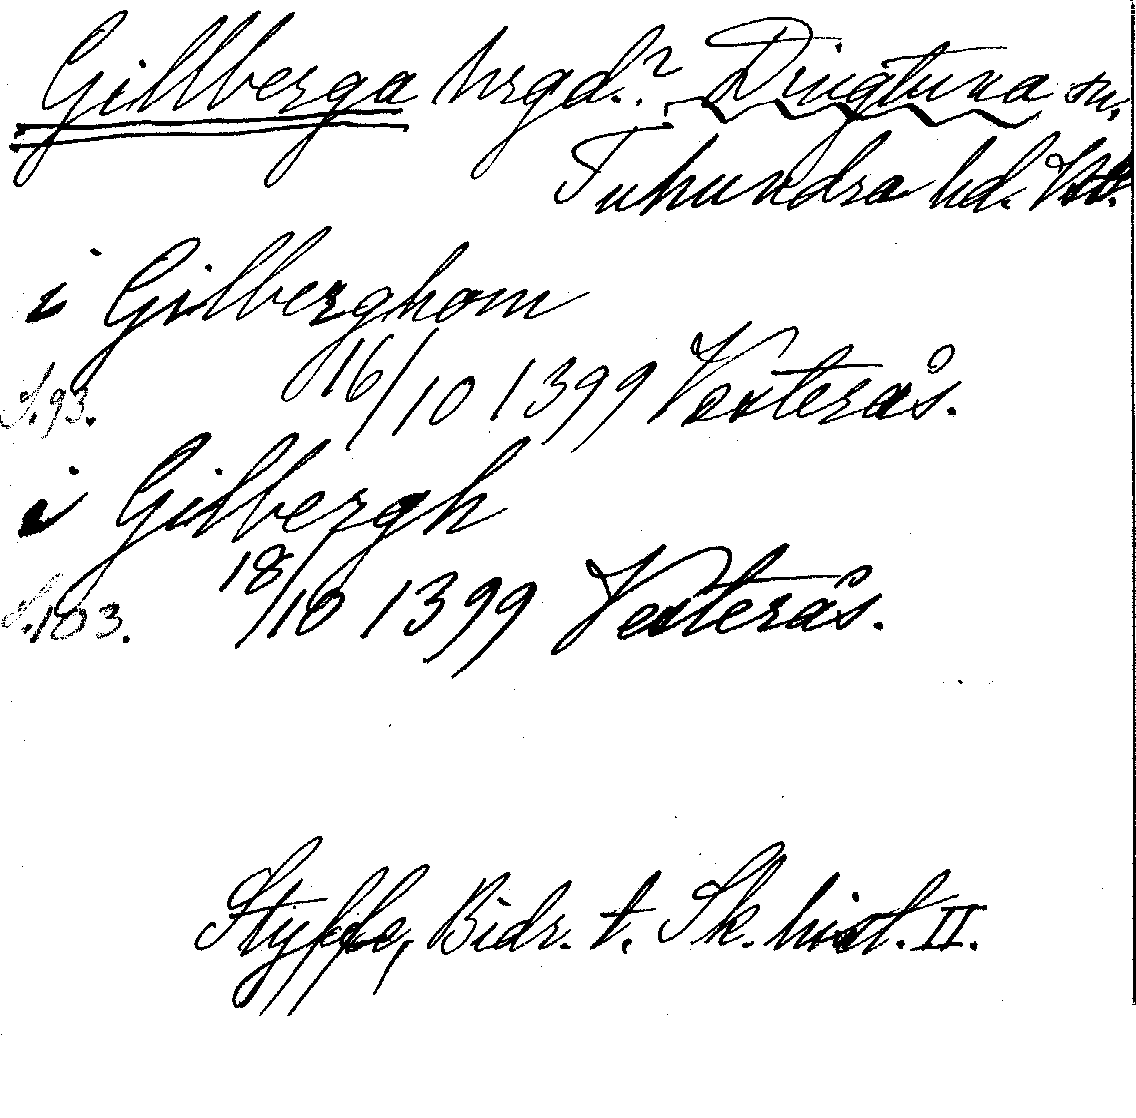 Gillberga hrgd.? Dingtuna sn.
Tuhundra hd. Vstl.
i Gilberghom
S.93. 16/10 1399 Vesterås.
i Gilbergh
S.103. 18/10 1399 Vesterås.
Styffe, Bidr. t. Sk. hist. II.